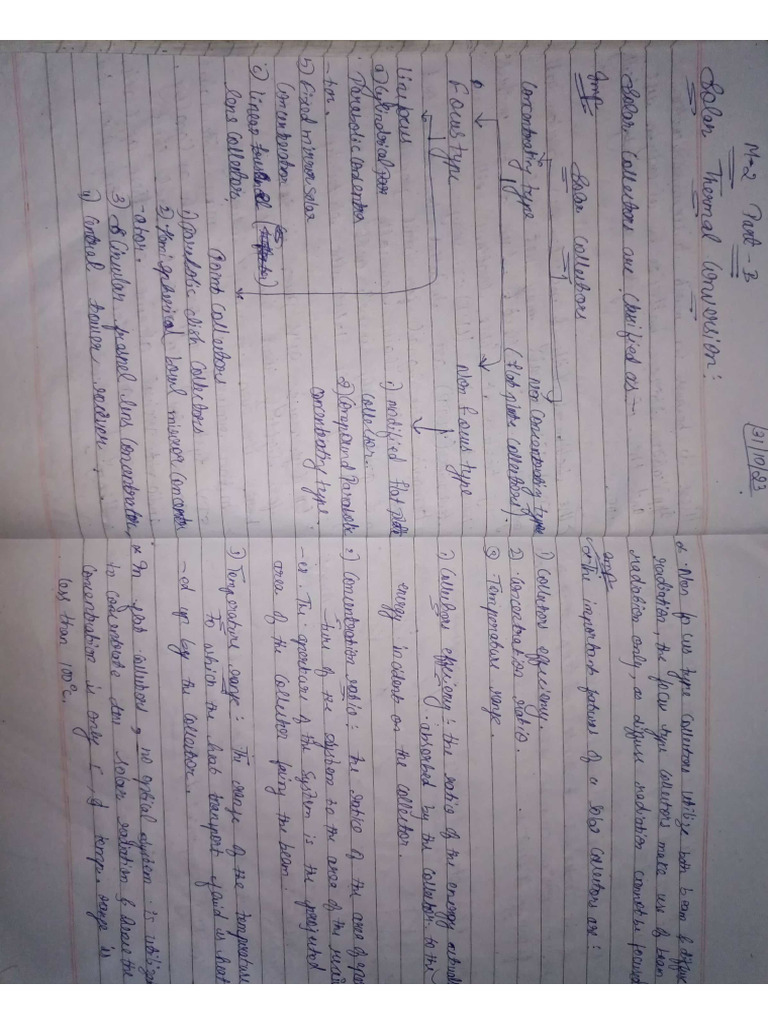 31/10/23
M-2 Part-B
Solar Thermal Conversion:
Solar Collectors are Classified as -
Imp
Solar Collectors
Concentrating type
non Concentrating type
(flat plate Collectors)
Focus type
Non Focus type
line focus
a) Cylindrical
Parabolic concentra
-tor.
b) fixed mirror solar
Concentrator
c) linear
lens Collector.
1) modified flat plate
Collector.
2) Compound Parabolic
Concentrating type.
Point Collectors
1) parabolic dish Collectors
2) Hemispherical bowl mirror Concentr
-ator.
3) Circular fresnel lens Concentrator,
4) Central tower receiver.
* Non focus type Collectors utilize both beam & diffuse
radiation, the focus type collectors make use of beam
radiation only, as diffuse radiation cannot be focused
Imp
The important features of a solar Collectors are:
1) Collectors efficiency.
2) Concentration ratio.
3) Temperature range.
1) Collectors efficiency: the ratio of the energy
absorbed by the Collector to the
energy incident on the collector.
2) Concentration ratio: the ratio of the area of aper
-ture of the system to the area of the receiv
-er. The aperture of the system is the projected
area of the Collector facing the beam.
3) Temperature range: The range of the temperature
to which the heat transport fluid is heat
-ed up by the collector.
* In flat collectors, no optical system is utilized
to concentrate the solar radiation & hence the
Concentration is only 1, & temp. range is
less than 100°C.